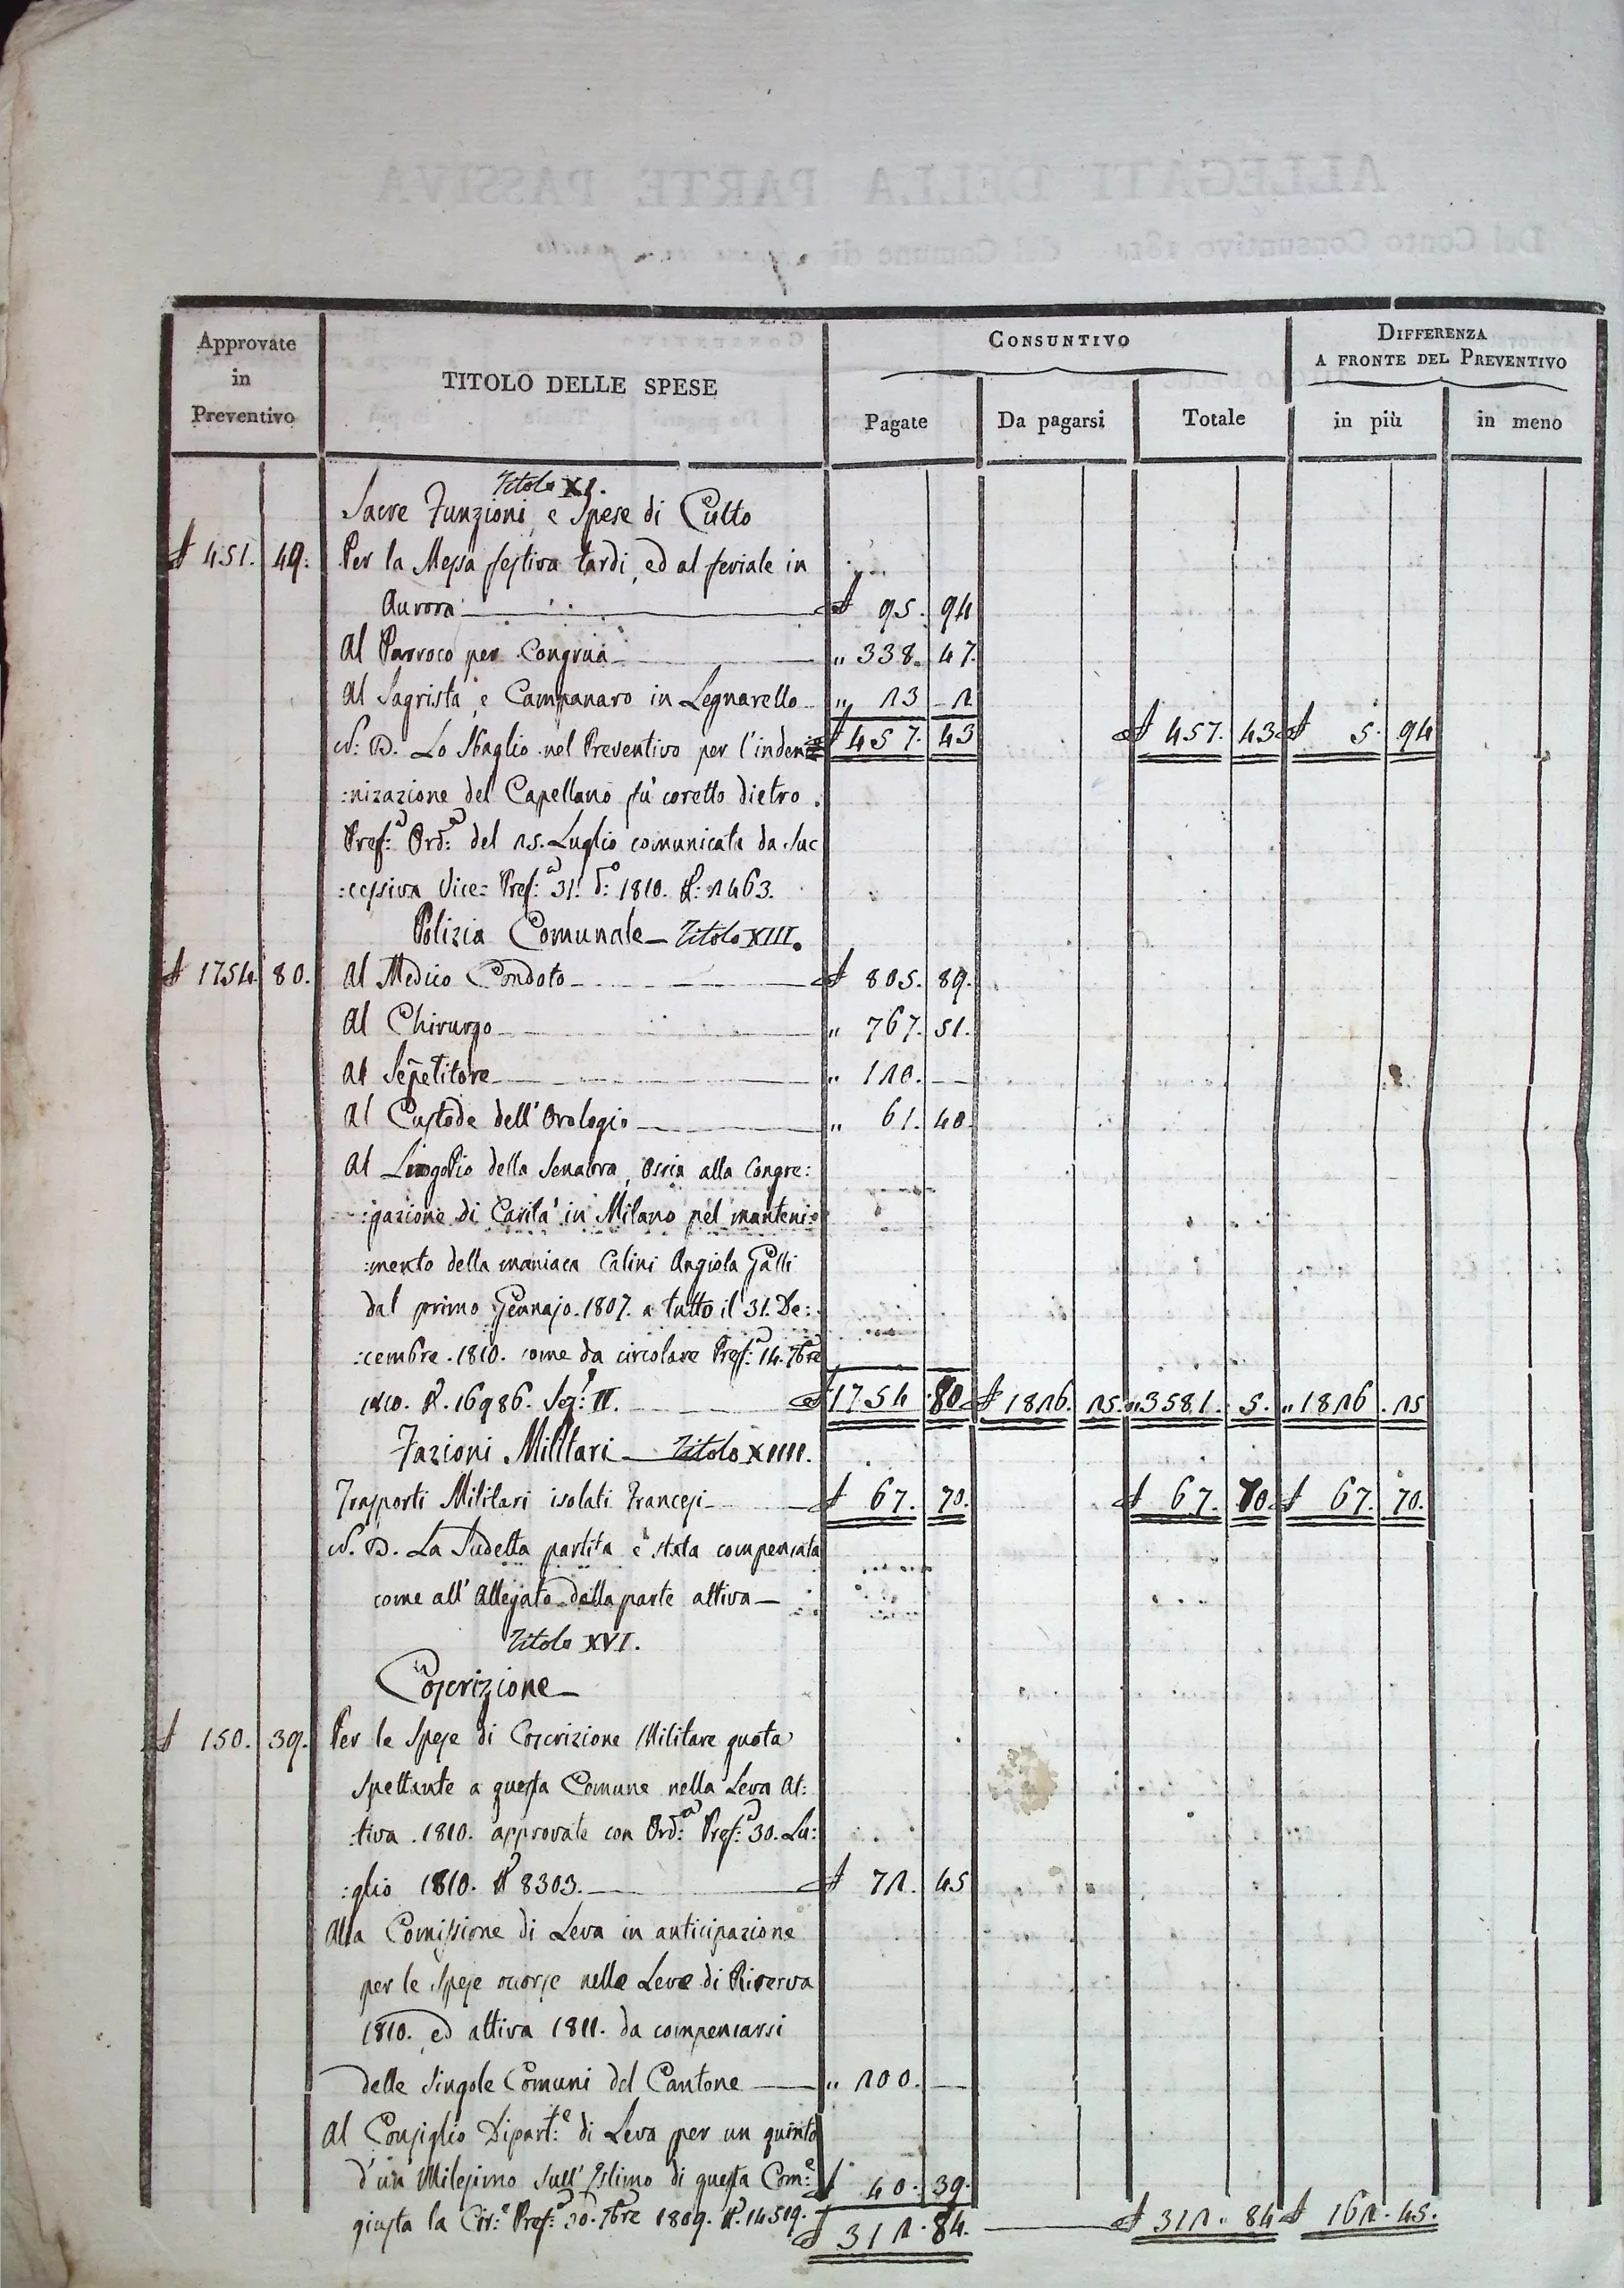 Approvate
in
Preventivo
TITOLO DELLE SPESE
CONSUNTIVO
DIFFERENZA
A FRONTE DEL PREVENTIVO
Pagate Da pagarsi Totale in più in meno
Titolo XI.
Sacre Funzioni, e Spese di Culto
£ 451. 49. Per la Messa festiva tardi, ed al feriale in
Aurora £ 95. 94
Al Parroco per Congrua " 338. 47.
Al Sagrista, e Campanaro in Legnarello " 23 - 2
£ 457. 43 £ 457. 43 £ 5. 94
N: B. Lo Sbaglio nel Preventivo per l'inden
:nizazione del Capellano fù coretto dietro
Pref:a Ord:a del 25. Luglio comunicata da Suc
:cessiva Vice= Pref:a 31. d:o 1810. N: 2463.
Polizia Comunale — Titolo XIII.
£ 1754. 80. Al Medico Condoto £ 805. 89.
Al Chirurgo " 767. 51.
Al Sepelitore " 120. —
Al Custode dell' Orologio " 61. 40.
Al Luogo Pio della Senavra, ossia alla Congre:
:gazione di Carità in Milano pel manteni:
:mento della maniaca Calini Angiola Galli
dal primo Gennajo. 1807. a tutto il 31. De:
:cembre. 1810. come da circolare Pref:a 14. 7bre
1810. N. 16986. Sez: II. £ 1754 . 80 £ 1826. 25. " 3581. 5. " 1826 . 25
Fazioni Militari — Titolo XIIII.
Trasporti Militari isolati Francesi £ 67. 70. £ 67. 70 £ 67. 70.
N. B. La Sudetta partita è stata compensata
come all' Allegato della parte attiva —
Titolo XVI.
Coscrizione
£ 150. 39. Per le Spese di Coscrizione Militare quota
Spettante a questa Comune nella Leva At:
:tiva . 1810. approvate con Ord:a Pref:a 30. Lu:
:glio 1810. N 8303. £ 72. 45
Alla Comissione di Leva in anticipazione
per le Spese occorse nelle Leve di Riserva
1810. ed attiva 1811. da compensarsi
delle Singole Comuni del Cantone " 200. —
Al Consiglio Dipart:e di Leva per un quinto
d'un Milesimo sull' Estimo di questa Com:e £ 40. 39.
giusta la Cir:e Pref:a 30. 7bre 1809. N. 14519.
£ 312. 84. £ 312. 84 £ 162. 45.